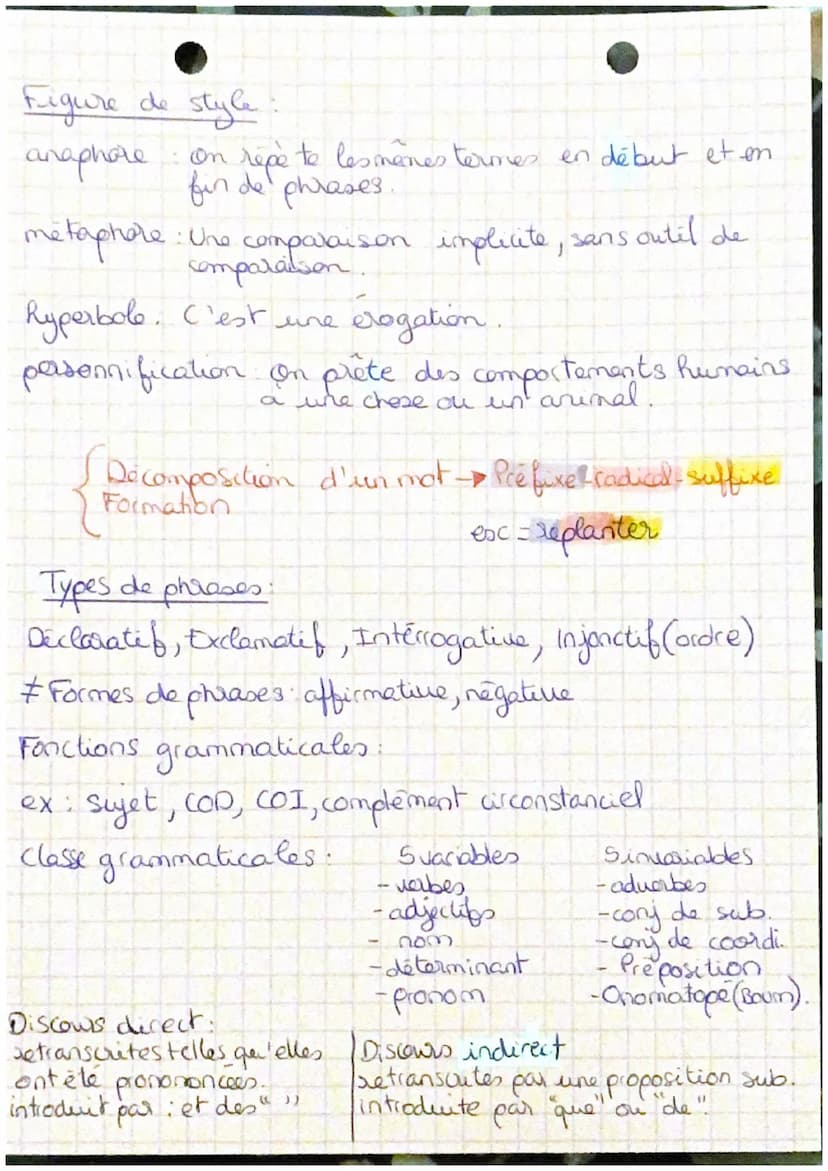 Figure de style :
anaphore : on répète les mêmes termes en début et en
fin de phrases.
métaphore : Une comparaison implicite, sans outil de
comparaison.
Hyperbole. C'est une érogation.
personnification : On prête des comportements humains
à une chose ou un animal.
Décomposition d'un mot → Préfixe-radical-suffixe
Formation
esc = replanter
Types de phrases :
Déclaratif, Exclamatif, Intérrogative, Injonctif (ordre)
≠ Formes de phrases : affirmative, négative
Fonctions grammaticales :
ex : sujet, COD, COI, complément circonstanciel
Classe grammaticales : 5 variables 5 invariables
- verbes - adverbes
- adjectifs - conj de sub.
- nom - conj de coordi.
- déterminant - Préposition
- pronom - Onomatopé (Boum).
Discours direct :
retranscrites telles qu'elles
ont été pronononcées.
introduit par : et des " "
Discours indirect
retransoutes par une proposition sub.
introduite par "que" ou "de".